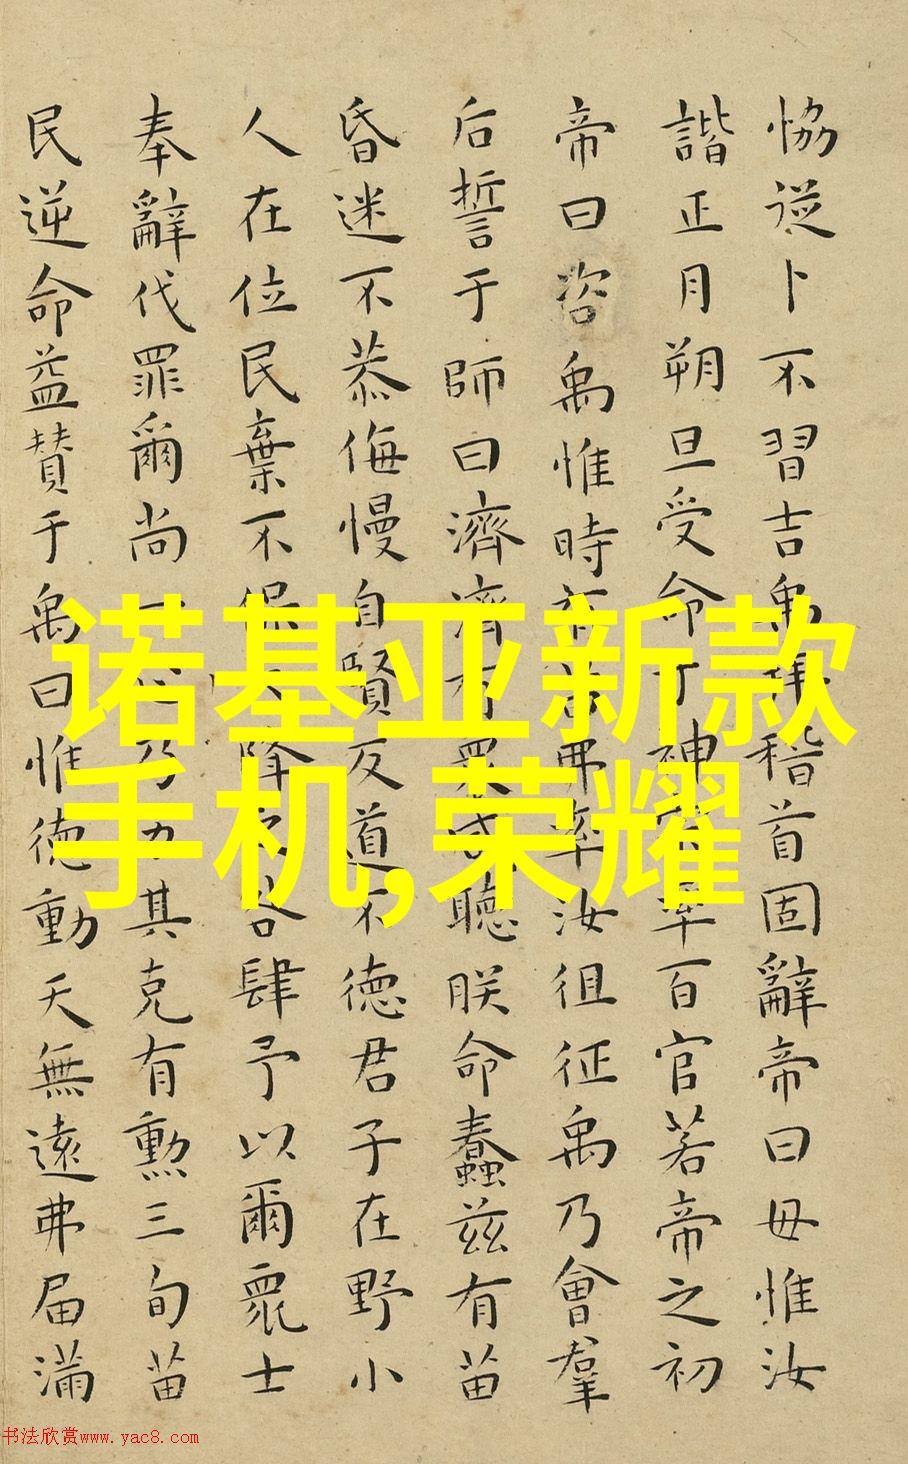 恊從卜不習吉禹拜稽首固辭帝曰毋惟汝
諧正月朔旦受命于神宗率百官若帝之初
帝曰咨禹惟時有苗弗率汝徂征禹乃會羣
后誓于師曰濟濟有眾咸聽朕命蠢兹有苗
昏迷不恭侮慢自賢反道不德君子在野小
人在位民棄不保天降之咎肆予以爾眾士
奉辭伐罪爾尚一心乃力其克有勲三旬苗
民逆命益贊于禹曰惟德動天無遠弗届滿
诺基亚新款
手机,荣耀
书法欣赏www.yac8.com